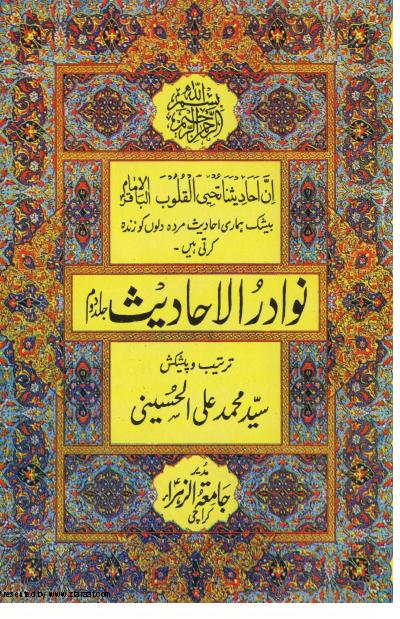 بسم الله
الرحمن الرحيم
اِنَّ اَحَادِیْثَنَا تُحْیِی الْقُلُوْبَ الامام الباقرؑ
بیشک ہماری احادیث مردہ دلوں کو زندہ
کرتی ہیں۔
نوادرُ الاحادیث جلد دوم
ترتیب و پیشکش
سیّد محمد علی الحُسینی
مُدیر
جامعۃُ الزہراءؑ
کراچی
Presented by www.ziaraat.com